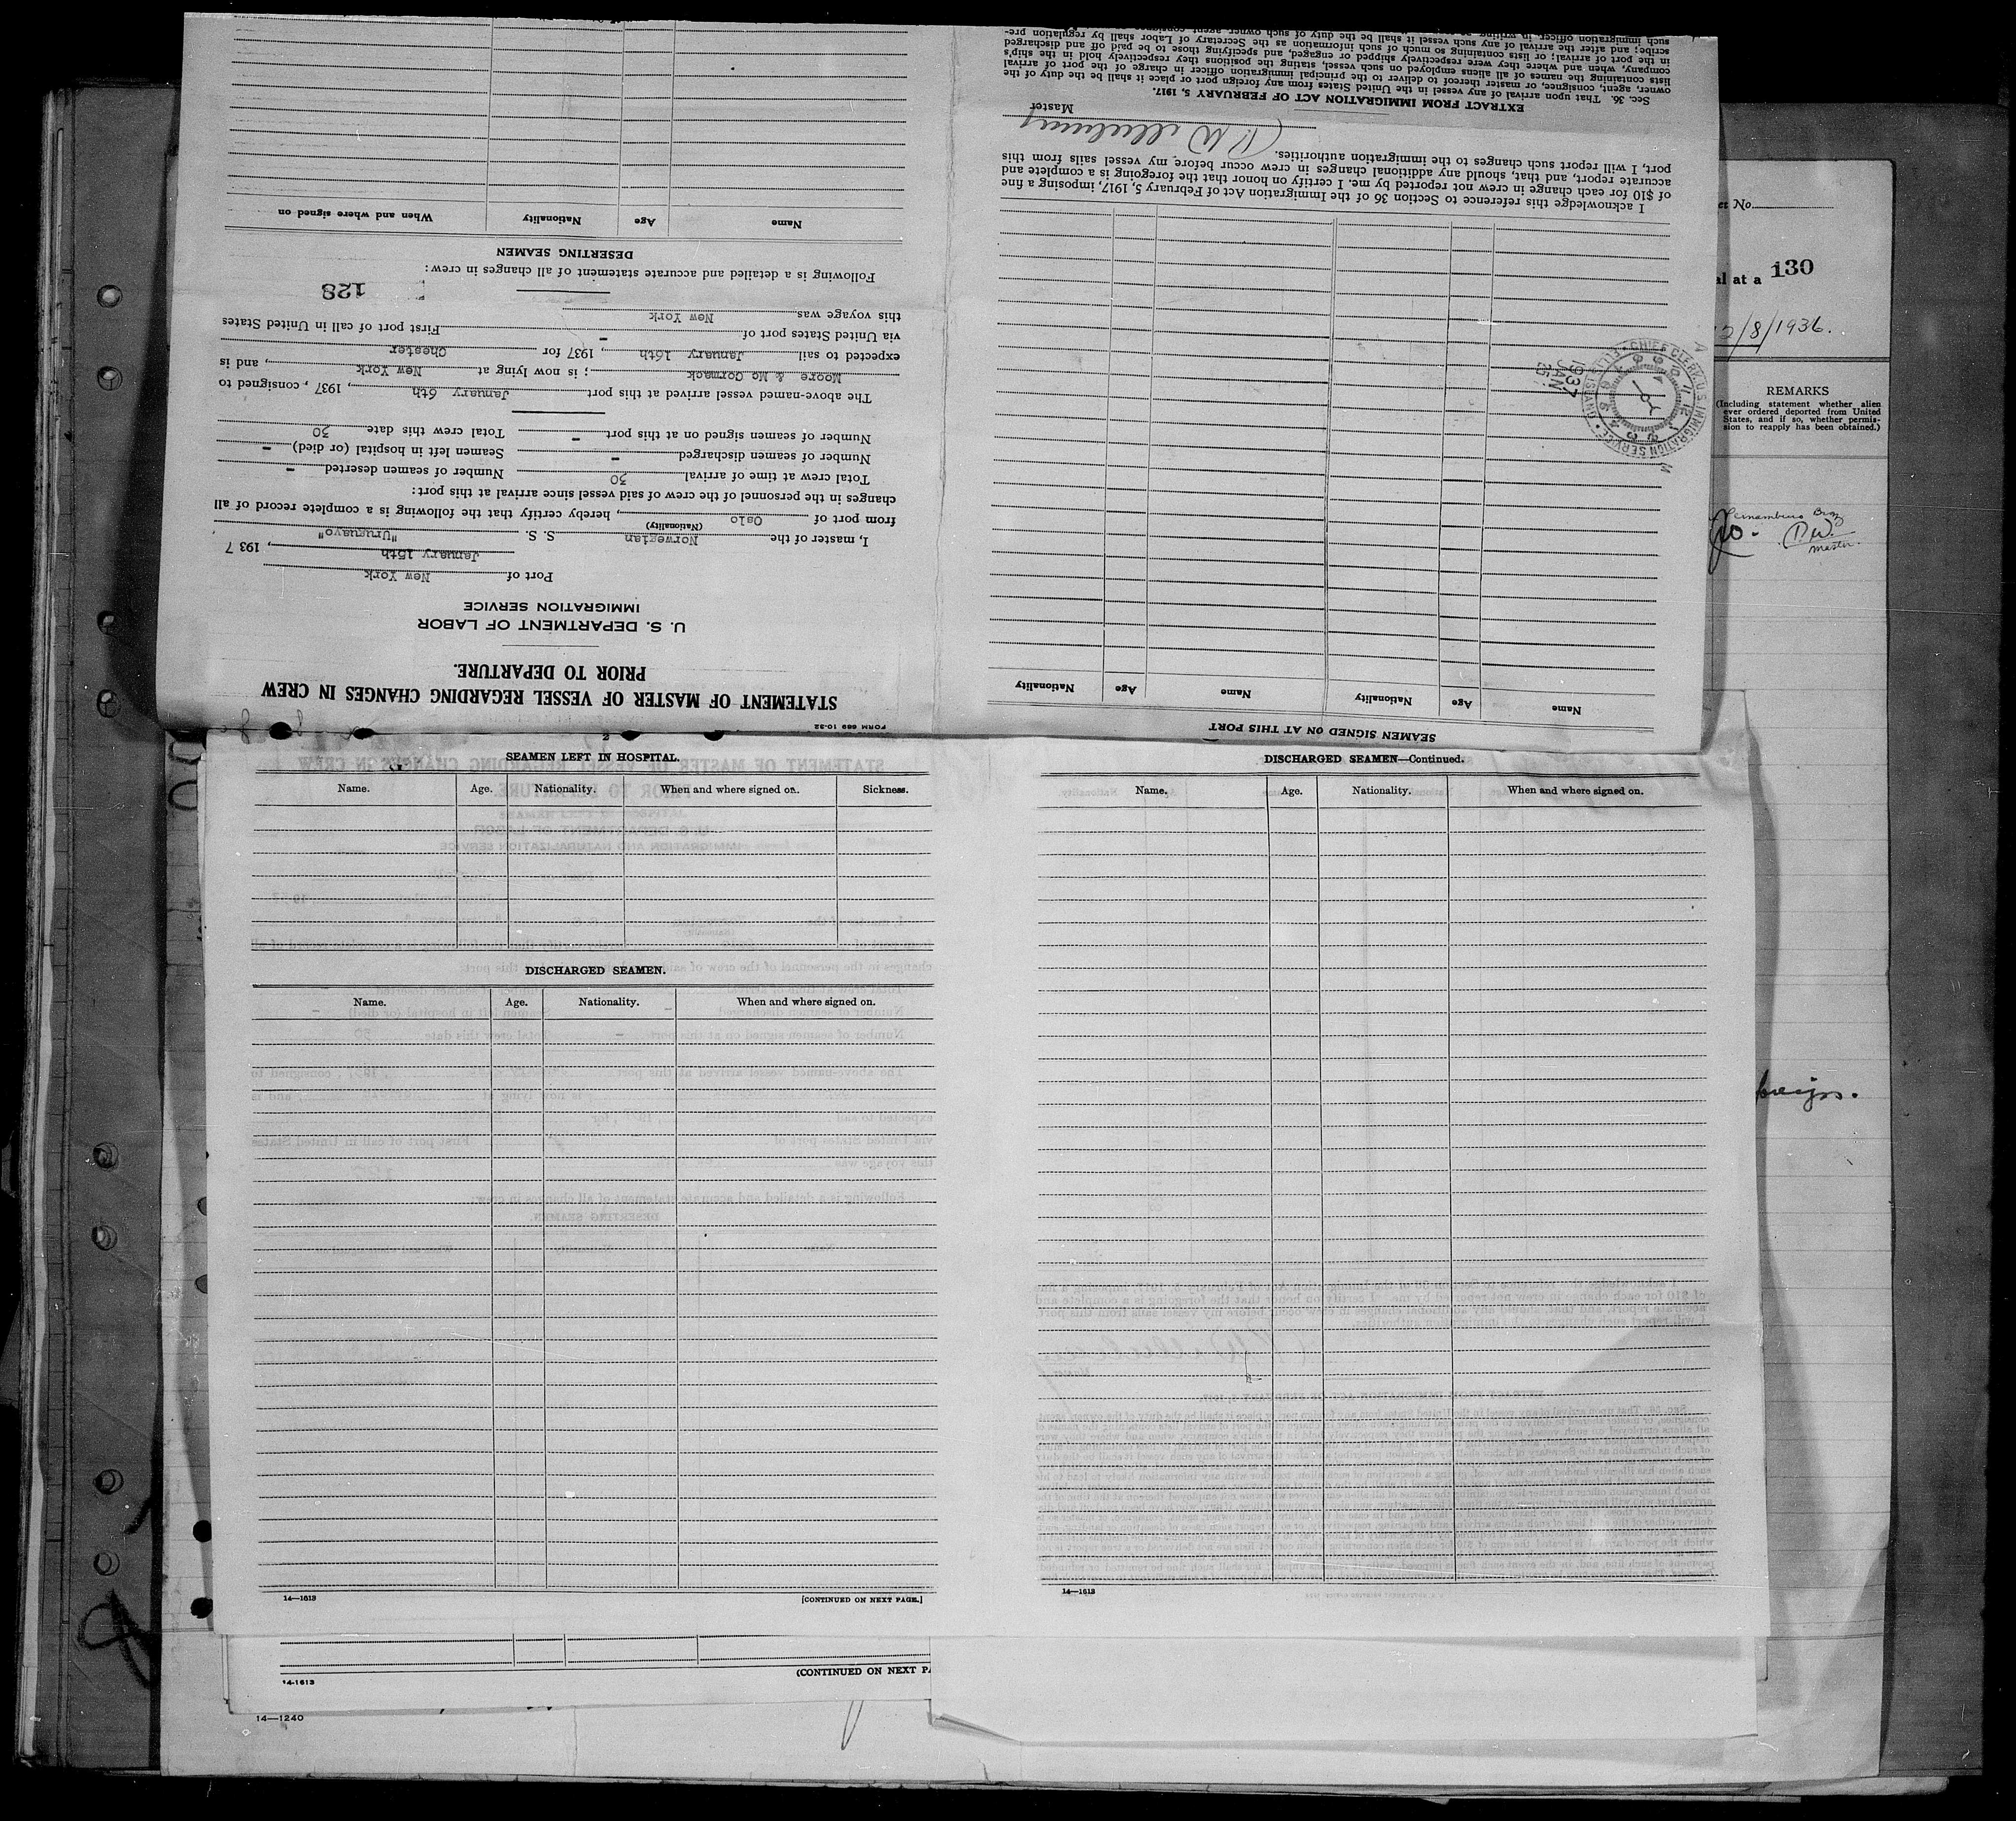 FORM 689 10-32
STATEMENT OF MASTER OF VESSEL REGARDING CHANGES IN CREW
PRIOR TO DEPARTURE.
U. S. DEPARTMENT OF LABOR
IMMIGRATION SERVICE
Port of New York
January 15th, 1937
I, master of the Norwegian S. S. "Uruguayo"
(Nationality)
from port of Oslo, hereby certify that the following is a complete record of all
changes in the personnel of the crew of said vessel since arrival at this port:
Total crew at time of arrival 30 Number of seamen deserted -
Number of seamen discharged - Seamen left in hospital (or died) -
Number of seamen signed on at this port - Total crew this date 30
The above-named vessel arrived at this port January 6th, 1937, consigned to
Moore & Mc Cormack; is now lying at New York, and is
expected to sail January 16th, 1937 for Chester
via United States port of - First port of call in United States
this voyage was New York
128
Following is a detailed and accurate statement of all changes in crew:
DESERTING SEAMEN
Name Age Nationality When and where signed on
SEAMEN SIGNED ON AT THIS PORT
Name Age Nationality Name Age Nationality
I acknowledge this reference to Section 36 of the Immigration Act of February 5, 1917, imposing a fine
of $10 for each change in crew not reported by me. I certify on honor that the foregoing is a complete and
accurate report, and that, should any additional changes in crew occur before my vessel sails from this
port, I will report such changes to the immigration authorities.
Master
EXTRACT FROM IMMIGRATION ACT OF FEBRUARY 5, 1917.
Sec. 36. That upon arrival of any vessel in the United States from any foreign port or place it shall be the duty of the
owner, agent, consignee, or master thereof to deliver to the principal immigration officer in charge of the port of arrival
lists containing the names of all aliens employed on such vessel, stating the positions they respectively hold in the ship's
company, when and where they were respectively shipped or engaged, and specifying those to be paid off and discharged
in the port of arrival; or lists containing so much of such information as the Secretary of Labor shall by regulation pre-
scribe; and after the arrival of any such vessel it shall be the duty of such owner, agent, consignee
such immigration officer, in writing
CHIEF CLERK U.S. IMMIGRATION SERVICE ELLIS ISLAND
1937 JAN
et No.
al at a 130
2/8/1936.
REMARKS
(Including statement whether alien
ever ordered deported from United
States, and if so, whether permis-
sion to reapply has been obtained.)
Pernambuco
P.W.
Master.
2
SEAMEN LEFT IN HOSPITAL.
Name. Age. Nationality. When and where signed on. Sickness.
DISCHARGED SEAMEN.
Name. Age. Nationality. When and where signed on.
14—1613 [CONTINUED ON NEXT PAGE.]
DISCHARGED SEAMEN—Continued.
Name. Age. Nationality. When and where signed on.
14—1613
14-1613 (CONTINUED ON NEXT PA
14—1240